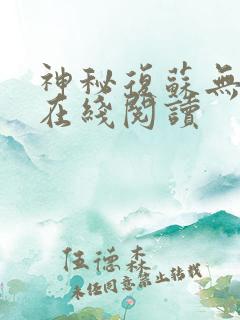 神秘復蘇無
在綫閱讀
伍德森
未经同意禁止转载